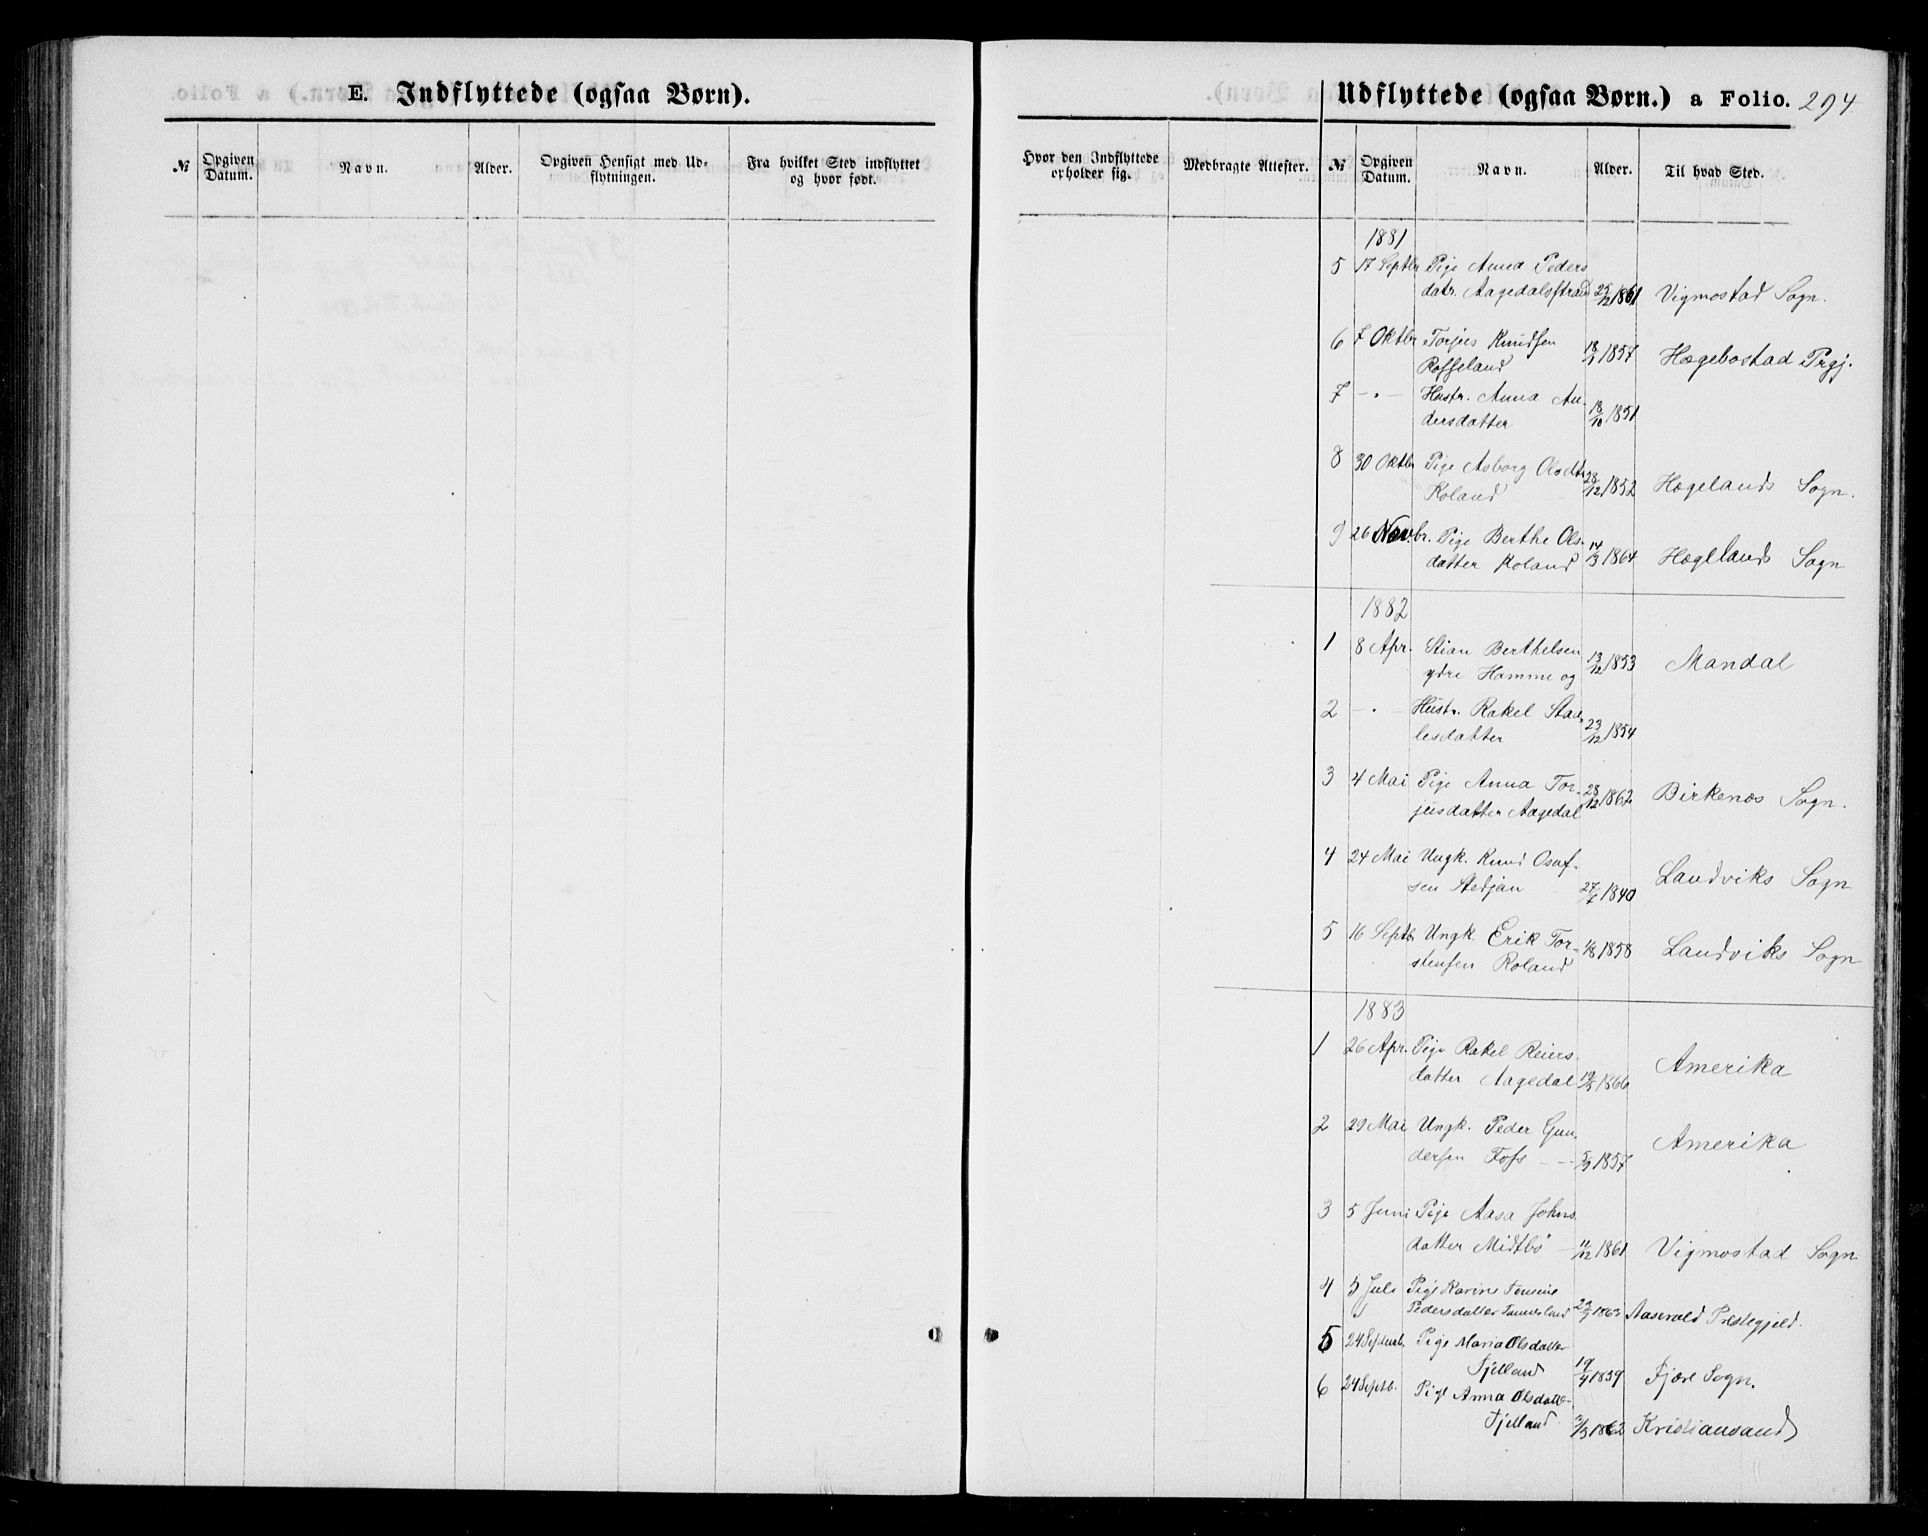 E. Indflyttede (ogsaa Børn).
№ Opgiven Datum. Navn. Alder. Opgiven Hensigt med Udflytningen. Fra hvilket Sted indflyttet og hvor født.
Udflyttede (ogsaa Børn.) a Folio. 294
Hvor den Indflyttede opholder sig. Medbragte Attester. № Opgiven Datum. Navn. Alder. Til hvad Sted.
1881
5 17 Septbr Pige Anna Peders
datr. Aagedalsstrand 25/12 1861 Vigmostad Sogn.
6 7 Oktbr Torjus Knudsen
Rosseland 18/1 1857 Hægebostad Prgj.
7 - " - Hustr. Anna An-
dersdatter 18/10 1851
8 30 Oktbr Pige Asborg Olsdtr
Roland 28/12 1852 Hægelands Sogn.
9 26 Novbr. Pige Berthe Ols-
datter Roland 14/3 1864 Hægelands Sogn
1882
1 8 Apr. Stian Berthelsen
ydre Homme og 13/12 1853 Mandal
2 - " - Hustr. Rakel Staa-
lesdatter 23/12 1854
3 4 Mai Pige Anna Tor-
jusdatter Aagedal 28/12 1862 Birkenæs Sogn.
4 24 Mai Ungk. Knud Osuf-
sen Stedjan 27/7 1840 Landviks Sogn
5 16 Septb. Ungk. Erik Tor-
stensen Roland 1/8 1858 Landviks Sogn
1883
1 26 Apr. Pige Rakel Reiers
datter Aagedal 19/3 1866 Amerika
2 29 Mai Ungk. Peder Gun-
dersen Foss - - 5/9 1857 Amerika
3 5 Juni Pige Aasa Johns
datter Midtbö 11/12 1861 Vigmostad Sogn
4 5 Juli Pige Karine Tonsine
Pedersdatter 23/7 1863 Aaserald Præstegjeld.
5 24 Septemb. Pige Maria Olsdatter
Fjelland 19/4 1839 Fjære Sogn.
6 24 Septb. Pige Anna Olsdatter
Fjelland 1862 Kristiansand